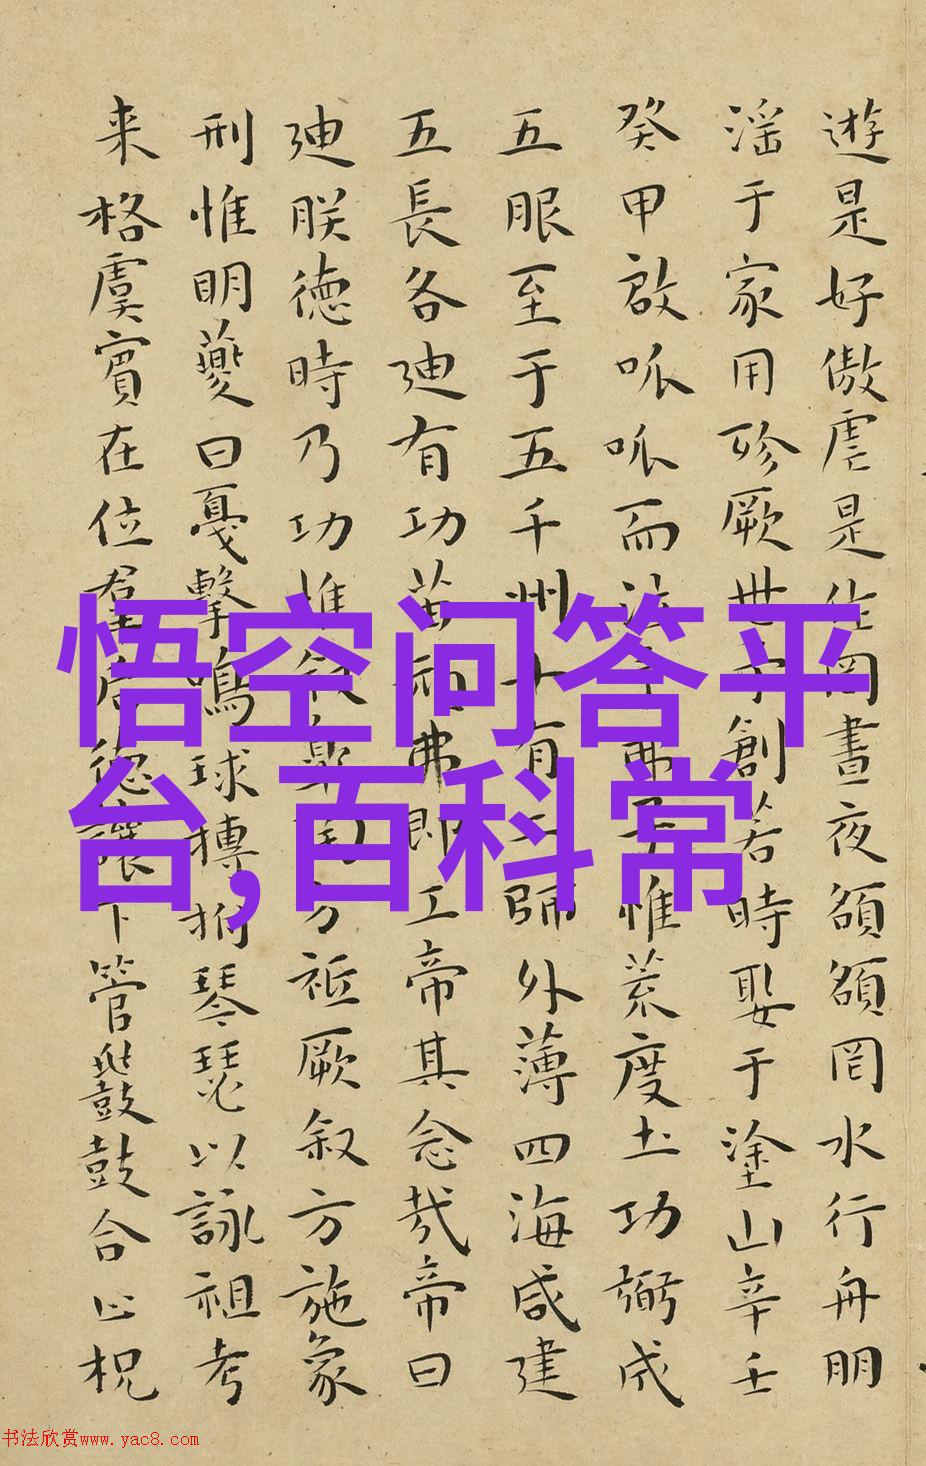 遊是好傲虐是作罔晝夜頟頟罔水行舟朋
滛于家用殄厥世予創若時娶于塗山辛壬
癸甲啟呱呱而泣予弗子惟荒度土功弼成
五服至于五千州十有二師外薄四海咸建
五長各迪有功苗弗即工帝其念㢤帝曰
迪朕德時乃功惟叙方祗厥叙方施象
刑惟明夔曰戛擊鳴球搏拊琴瑟以詠祖考
来格虞賓在位羣后德讓下管鼗鼓合止柷
悟空问答平
台,百科常
书法欣赏www.yac8.com